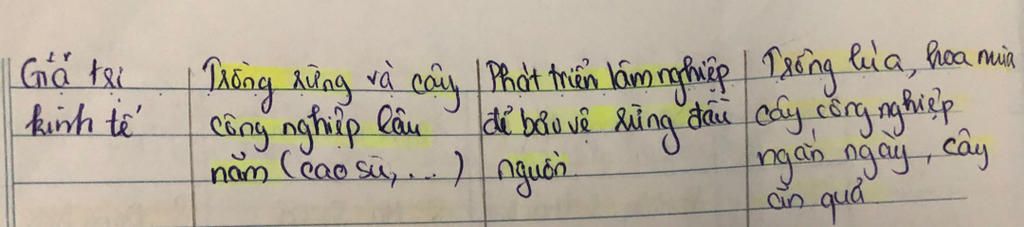 Giá trị
kinh tế
Trồng rừng và cây
công nghiệp lâu
năm (cao su,...)
Phát triển lâm nghiệp
để bảo vệ rừng đầu
nguồn
Trồng lúa, hoa màu
cây công nghiệp
ngắn ngày, cây
ăn quả